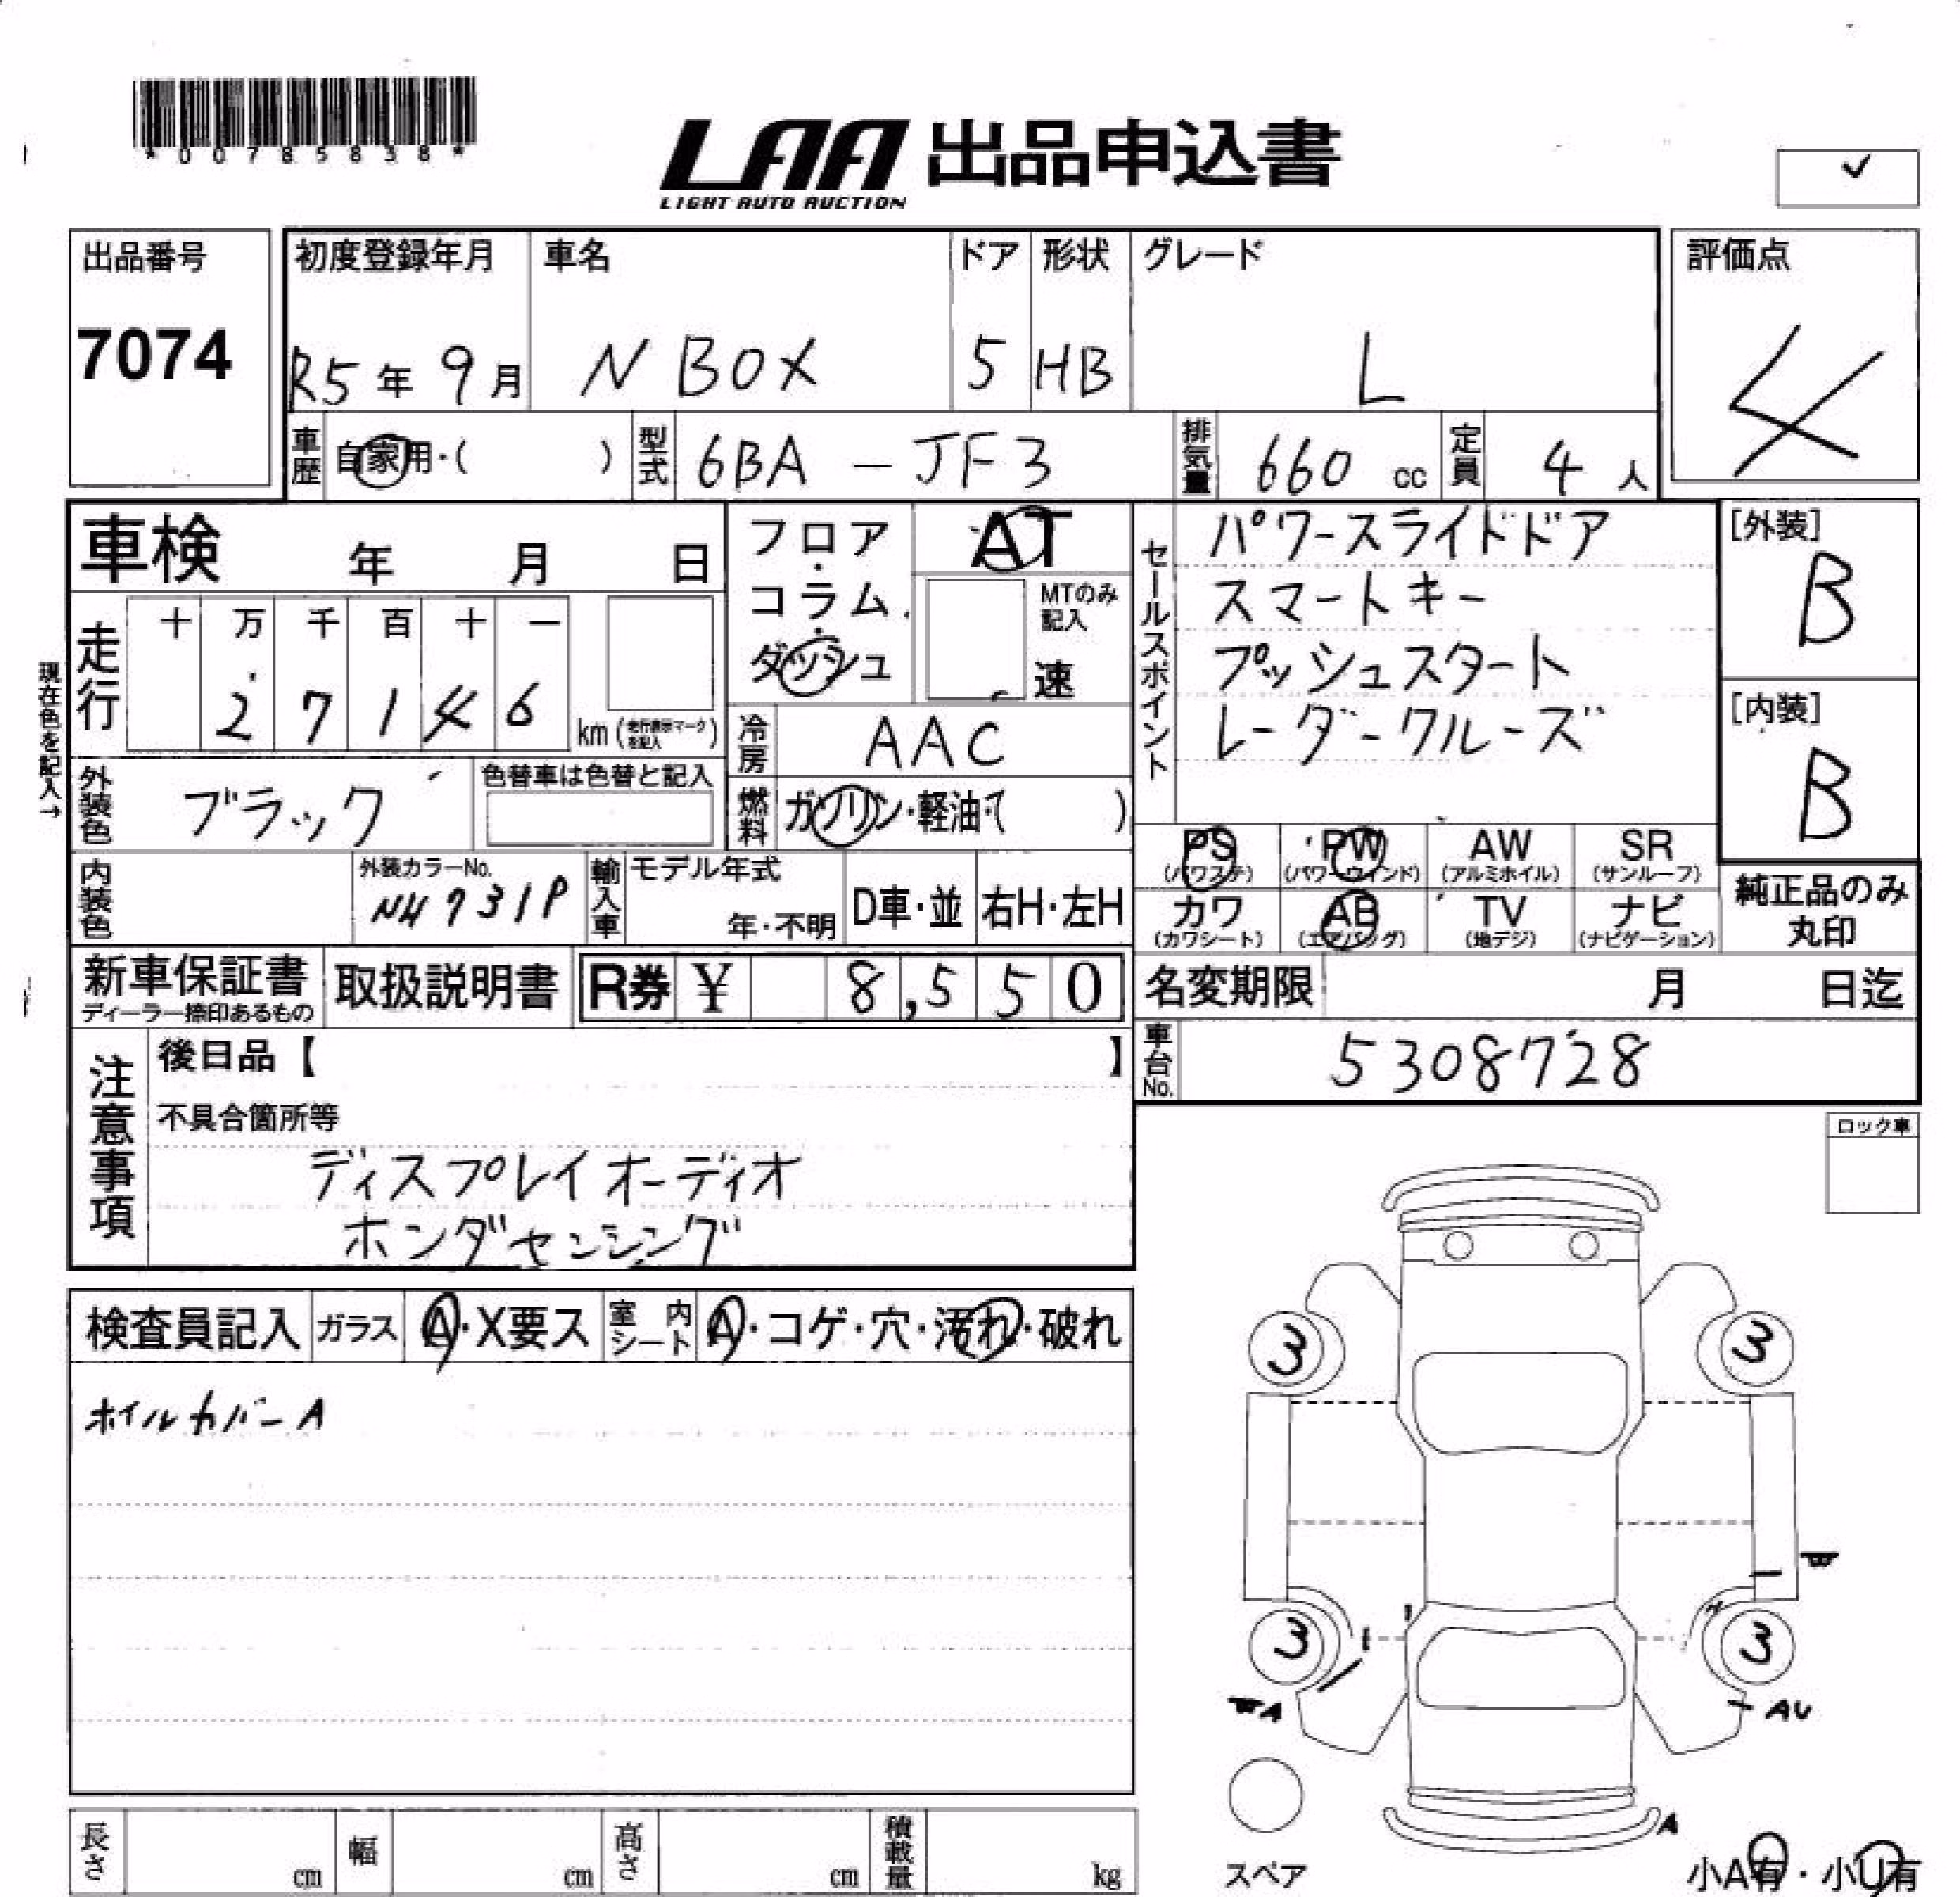 *00785838*
LAA 出品申込書
LIGHT AUTO AUCTION
✓
出品番号
7074
初度登録年月 車名 ドア 形状 グレード
R5年 9月 N BOX 5 HB L
評価点
4
車歴 自家用・( ) 型式 6BA-JF3 排気量 660 cc 定員 4人
車検 年 月 日
フロア・コラム・ダッシュ
AT
MTのみ記入
速
セールスポイント
パワースライドドア
スマートキー
プッシュスタート
レーダークルーズ
[外装]
B
[内装]
B
現在色を記入→
走行 十 万 千 百 十 一
2 7 1 4 6 km (走行表示マークを記入)
冷房 AAC
外装色 ブラック 色替車は色替と記入
燃料 ガソリン・軽油・( )
PS (パワステ) PW (パワーウインド) AW (アルミホイル) SR (サンルーフ)
カワ (カワシート) AB (エアバッグ) TV (地デジ) ナビ (ナビゲーション)
純正品のみ丸印
内装色 外装カラーNo. NH731P 輸入車 モデル年式 年・不明 D車・並 右H・左H
新車保証書 ディーラー捺印あるもの 取扱説明書 R券 ¥ 8,550
名変期限 月 日迄
車台No. 5308728
注意事項
後日品【 】
不具合箇所等
ディスプレイオーディオ
ホンダセンシング
ロック車
検査員記入 ガラス A・X要ス 室内シート A・コゲ・穴・汚れ・破れ
ホイルカバーA
3 3
W
3 3
WA AU
A
スペア
小A有・小U有
長さ cm 幅 cm 高さ cm 積載量 kg